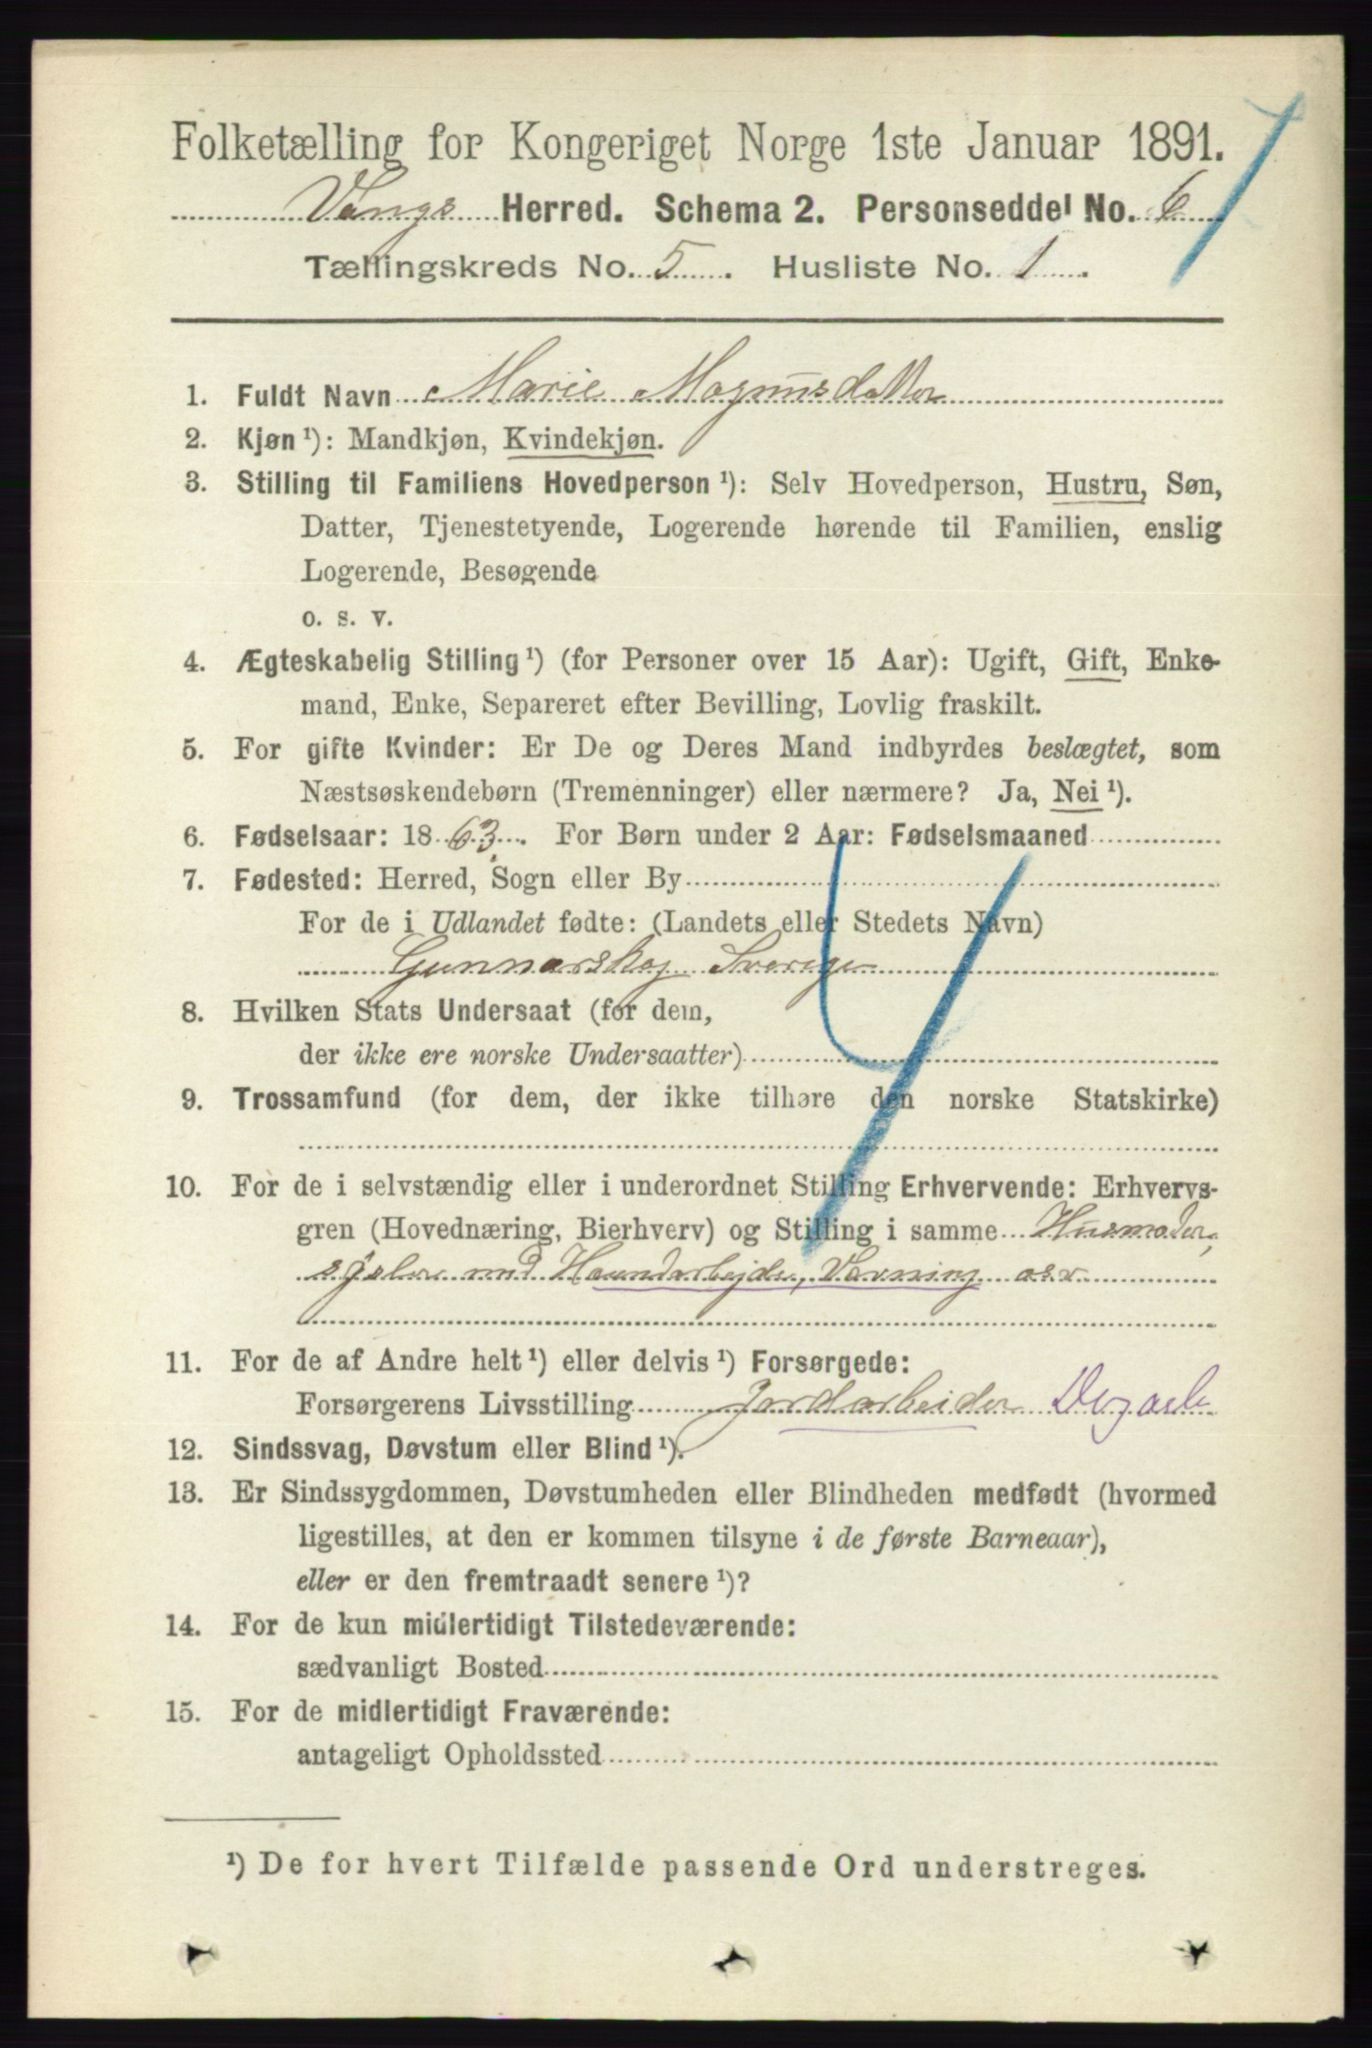 Folketælling for Kongeriget Norge 1ste Januar 1891.
Vangs Herred. Schema 2. Personseddel No. 6
Tællingskreds No. 5. Husliste No. 1.
1. Fuldt Navn Marie Magnusdatter
2. Kjøn ¹): Mandkjøn, Kvindekjøn.
3. Stilling til Familiens Hovedperson ¹): Selv Hovedperson, Hustru, Søn,
Datter, Tjenestetyende, Logerende hørende til Familien, enslig
Logerende, Besøgende
o. s. v.
4. Ægteskabelig Stilling ¹) (for Personer over 15 Aar): Ugift, Gift, Enke-
mand, Enke, Separeret efter Bevilling, Lovlig fraskilt.
5. For gifte Kvinder: Er De og Deres Mand indbyrdes beslægtet, som
Næstsøskendebørn (Tremenninger) eller nærmere? Ja, Nei ¹).
6. Fødselsaar: 1863. For Børn under 2 Aar: Fødselsmaaned
7. Fødested: Herred, Sogn eller By
For de i Udlandet fødte: (Landets eller Stedets Navn)
Gunnarskog Sverige
8. Hvilken Stats Undersaat (for dem,
der ikke ere norske Undersaatter)
9. Trossamfund (for dem, der ikke tilhøre den norske Statskirke)
10. For de i selvstændig eller i underordnet Stilling Erhvervende: Erhvervs-
gren (Hovednæring, Bierhverv) og Stilling i samme Husmoder,
sysler med Haandarbejde, Vævning osv
11. For de af Andre helt ¹) eller delvis ¹) Forsørgede:
Forsørgerens Livsstilling Jordarbeider
12. Sindssvag, Døvstum eller Blind ¹).
13. Er Sindssygdommen, Døvstumheden eller Blindheden medfødt (hvormed
ligestilles, at den er kommen tilsyne i de første Barneaar),
eller er den fremtraadt senere ¹)?
14. For de kun midlertidigt Tilstedeværende:
sædvanligt Bosted
15. For de midlertidigt Fraværende:
antageligt Opholdssted
¹) De for hvert Tilfælde passende Ord understreges.